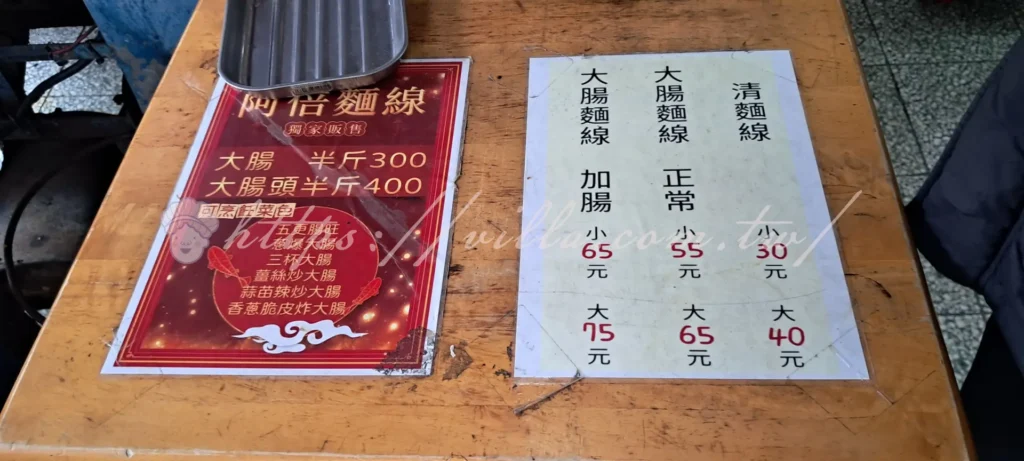 阿倍麵線
獨家販售
大腸 半斤300
大腸頭半斤400
可烹飪菜色
五更腸旺
蔥爆大腸
三杯大腸
薑絲炒大腸
蒜苗辣炒大腸
香蔥脆皮炸大腸
清麵線
小
30
元
大
40
元
大腸麵線 正常
小
55
元
大
65
元
大腸麵線 加腸
小
65
元
大
75
元
https://villa.com.tw/